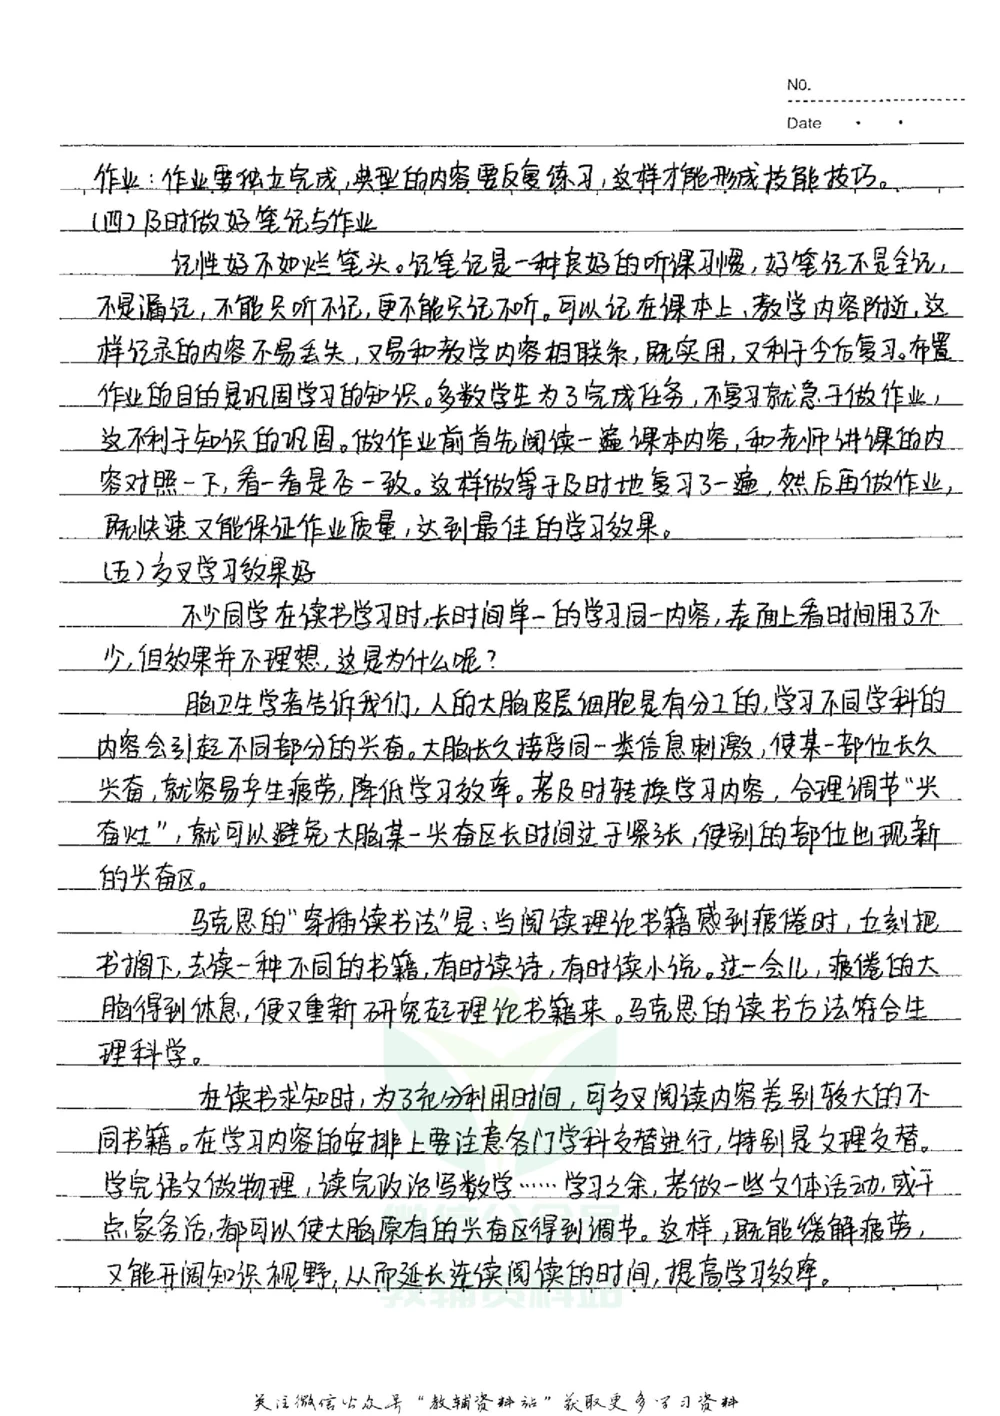 No.
Date
作业：作业要独立完成，典型的内容要反复练习，这样才能形成技能技巧。
(四)及时做好笔记与作业
记性好不如烂笔头。记笔记是一种良好的听课习惯，好笔记不是全记，
不是漏记，不能只听不记，更不能只记不听。可以记在课本上，教学内容附近，这
样记录的内容不易丢失，又易和教学内容相联系，既实用，又利于今后复习。布置
作业的目的是巩固学习的知识。多数学生为了完成任务，不复习就急于做作业，
这不利于知识的巩固。做作业前首先阅读一遍课本内容，和老师讲课的内
容对照一下，看一看是否一致。这样做等于及时地复习了一遍，然后再做作业，
既快速又能保证作业质量，达到最佳的学习效果。
(五)交叉学习效果好
不少同学在读书学习时，长时间单一的学习同一内容，表面上看时间用了不
少，但效果并不理想，这是为什么呢？
脑卫生学者告诉我们，人的大脑皮层细胞是有分工的，学习不同学科的
内容会引起不同部分的兴奋。大脑长久接受同一类信息刺激，使某一部位长久
兴奋，就容易产生疲劳，降低学习效率。若及时转换学习内容，合理调节“兴
奋灶”，就可以避免大脑某一兴奋区长时间过于紧张，使别的部位出现新
的兴奋区。
马克思的“穿插读书法”是：当阅读理论书籍感到疲倦时，立刻把
书搁下，去读一种不同的书籍，有时读诗，有时读小说。过一会儿，疲倦的大
脑得到休息，便又重新研究起理论书籍来。马克思的读书方法符合生
理科学。
在读书求知时，为了充分利用时间，可交叉阅读内容差别较大的不
同书籍。在学习内容的安排上要注意各门学科交替进行，特别是文理交替。
学完语文做物理，读完政治写数学……学习之余，若做一些文体活动，或干
点家务活，都可以使大脑原有的兴奋区得到调节。这样，既能缓解疲劳，
又能开阔知识视野，从而延长连续阅读的时间，提高学习效率。
微信公众号
教辅资料站
关注微信公众号“教辅资料站”获取更多学习资料